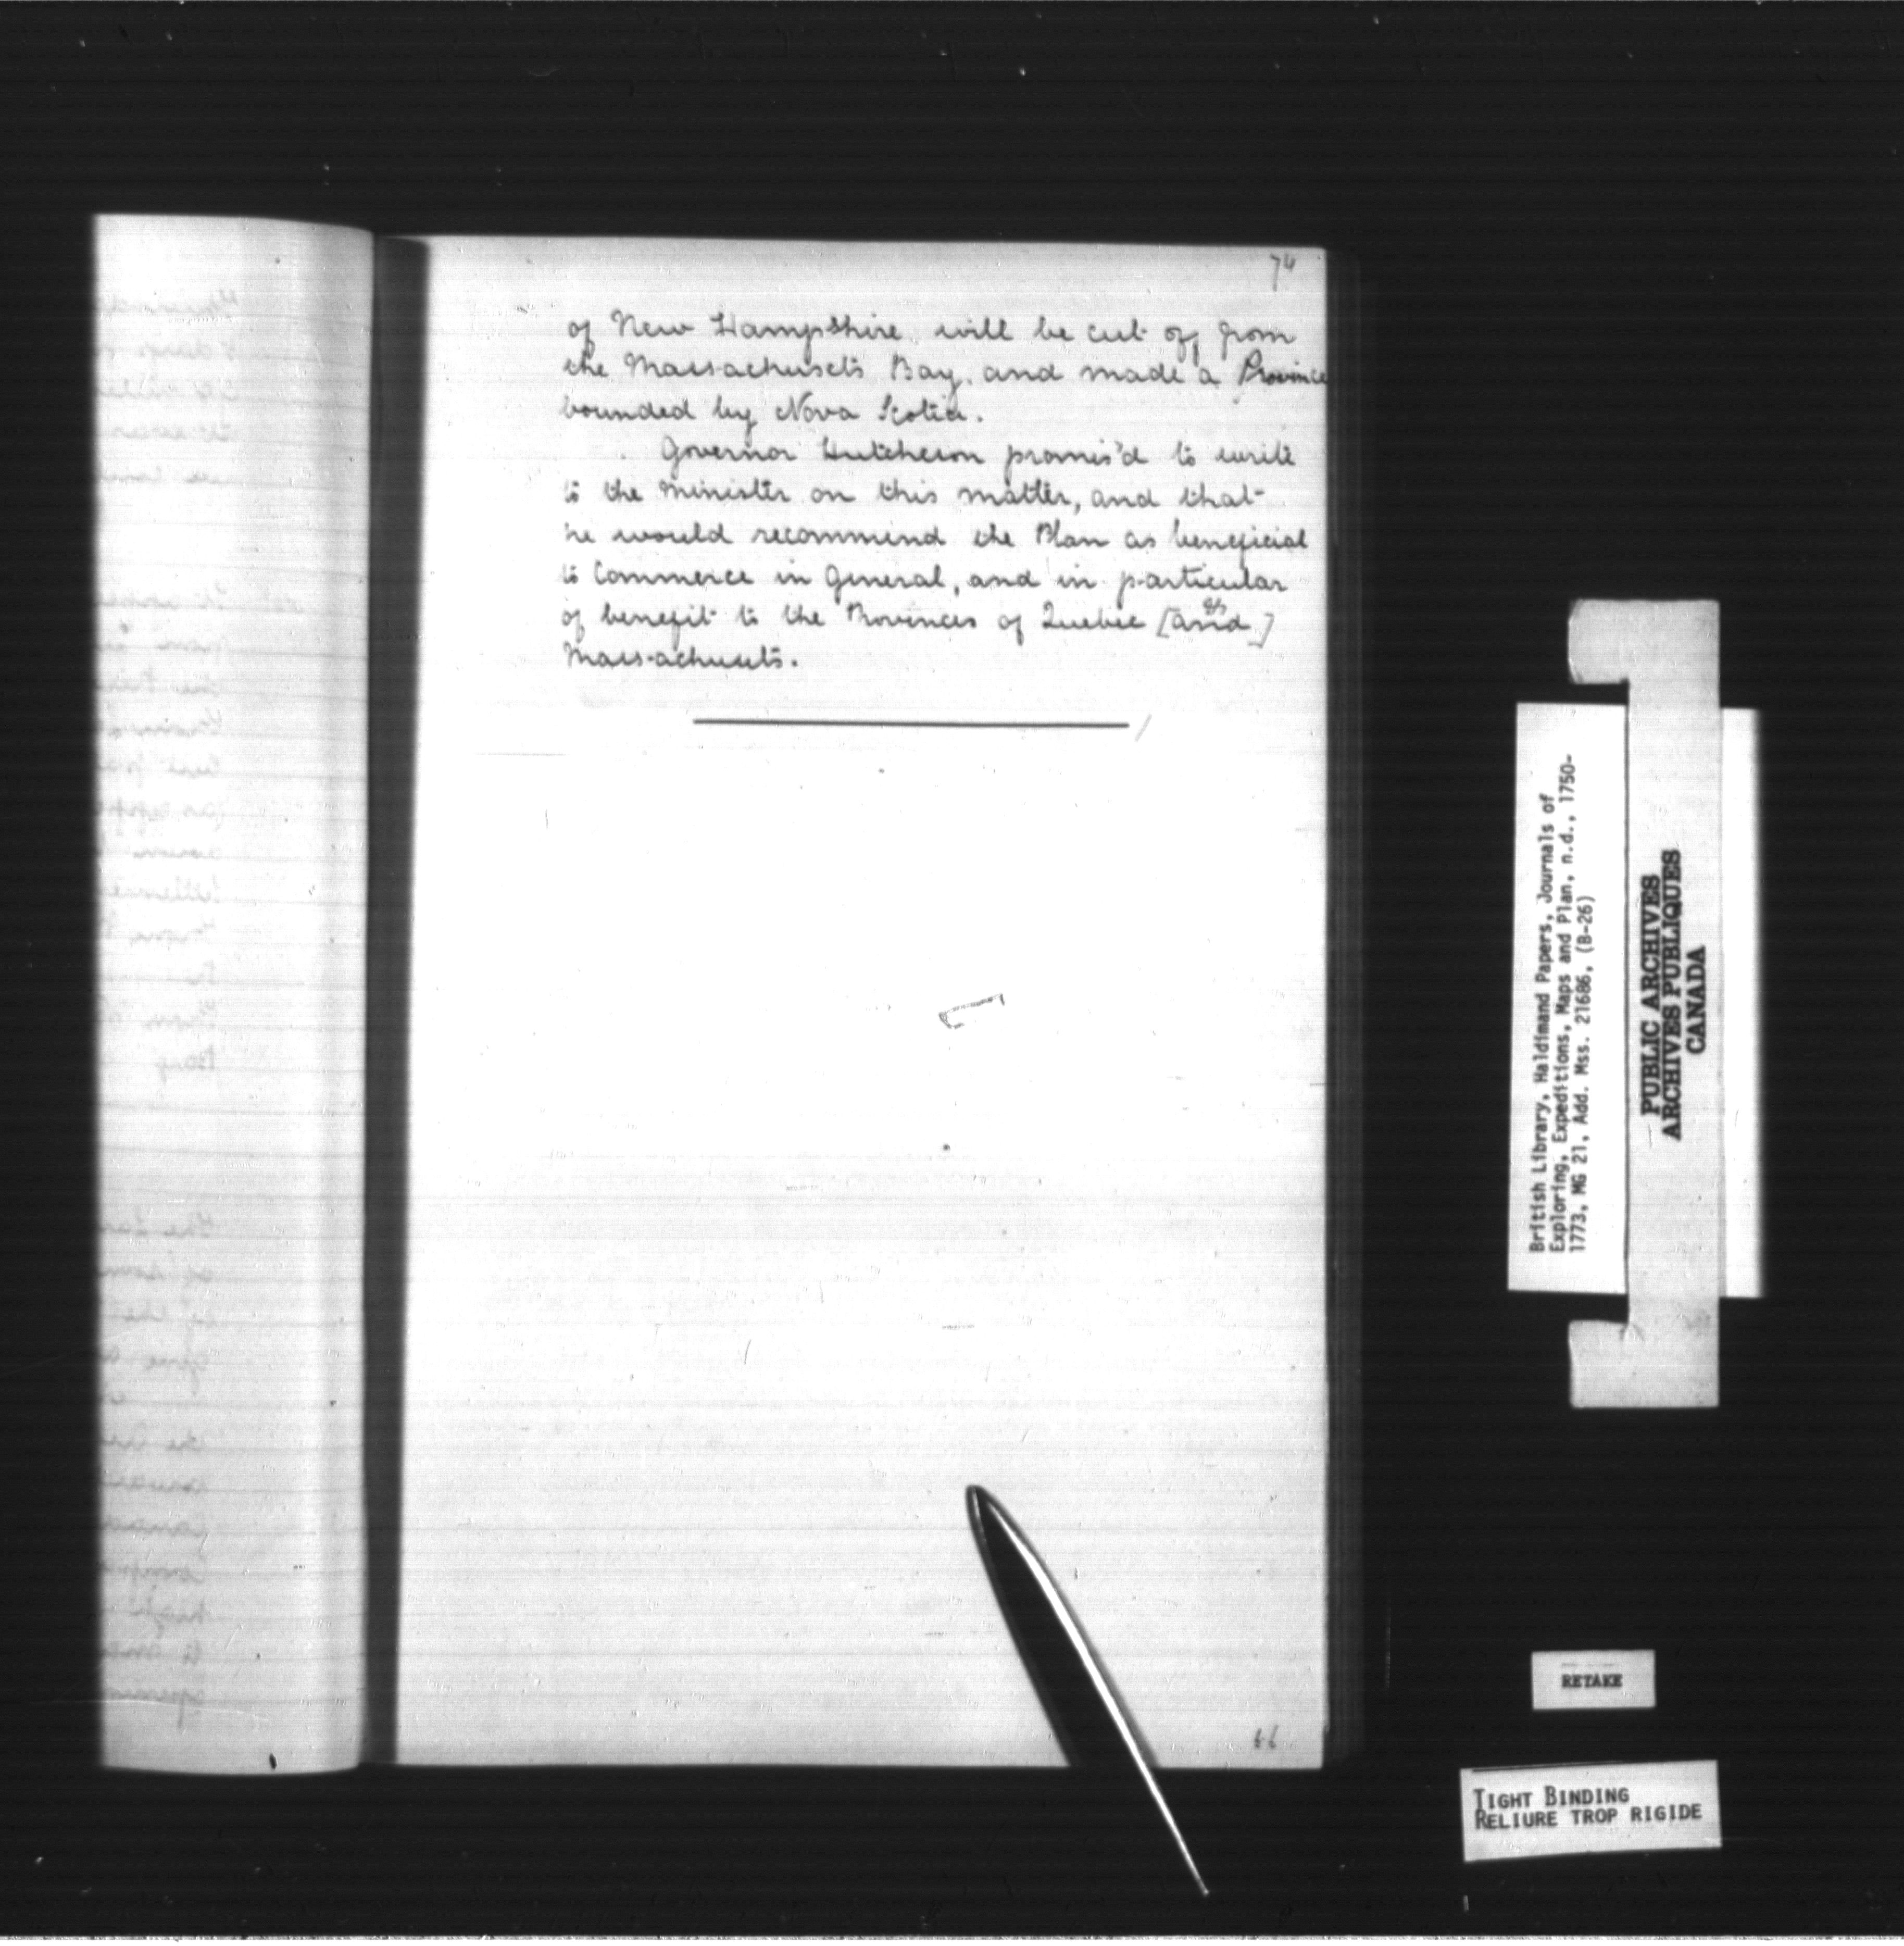 74
of New Hampshire will be cut off from
the Massachusets Bay, and made a Province
bounded by Nova Scotia.
Governor Hutcheson promis'd to write
to the Minister on this matter, and that
he would recommend the Plan as beneficial
to Commerce in General, and in particular
of benefit to the Provinces of Quebec [and]
Massachusets.
66
British Library, Haldimand Papers, Journals of
Exploring, Expeditions, Maps and Plan, n.d., 1750-
1773, MG 21, Add. Mss. 21686, (B-26)
PUBLIC ARCHIVES
ARCHIVES PUBLIQUES
CANADA
RETAKE
TIGHT BINDING
RELIURE TROP RIGIDE